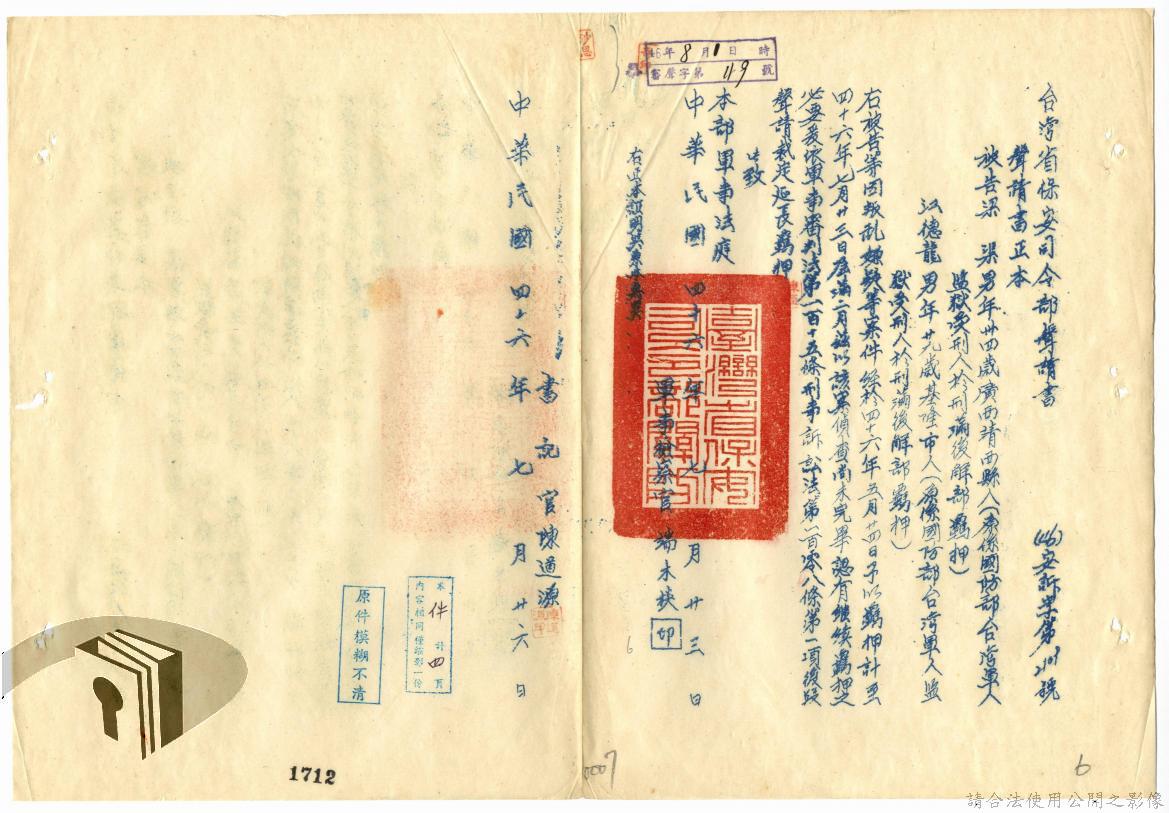 台灣省保安司令部聲請書
(46)安訴字第
號
聲請書正本
被告梁 渠男年卅四歲廣西靖西縣人(原係國防部台灣軍人
監獄受刑人於刑滿後解部羈押)
江德龍男年廿九歲基隆市人(原係國防部台灣軍人監
獄受刑人於刑滿後解部羈押)
右被告等因叛乱嫌疑等案件経於四十六年五月廿四日予以羈押計至
四十六年七月廿三日屆滿二月茲以該案偵查尚未完畢認有継續羈押之
必要爰依軍事審判法第一百十五條刑事訴訟法第一百零八條第一項後段
聲請裁定延長羈押
此致
本部軍事法庭
中華民國四十六年七月廿三日
軍事檢察官 端木棪
印
臺灣省保安司令部關防
右正本證明與原本無異
書記官陳道源
中華民國四十六年七月廿六日
46年8月1日 時
審聲字第119號
本件計四頁
內容相同僅攝影一份
原件模糊不清
1712
0007
6
6
請合法使用公開之影像